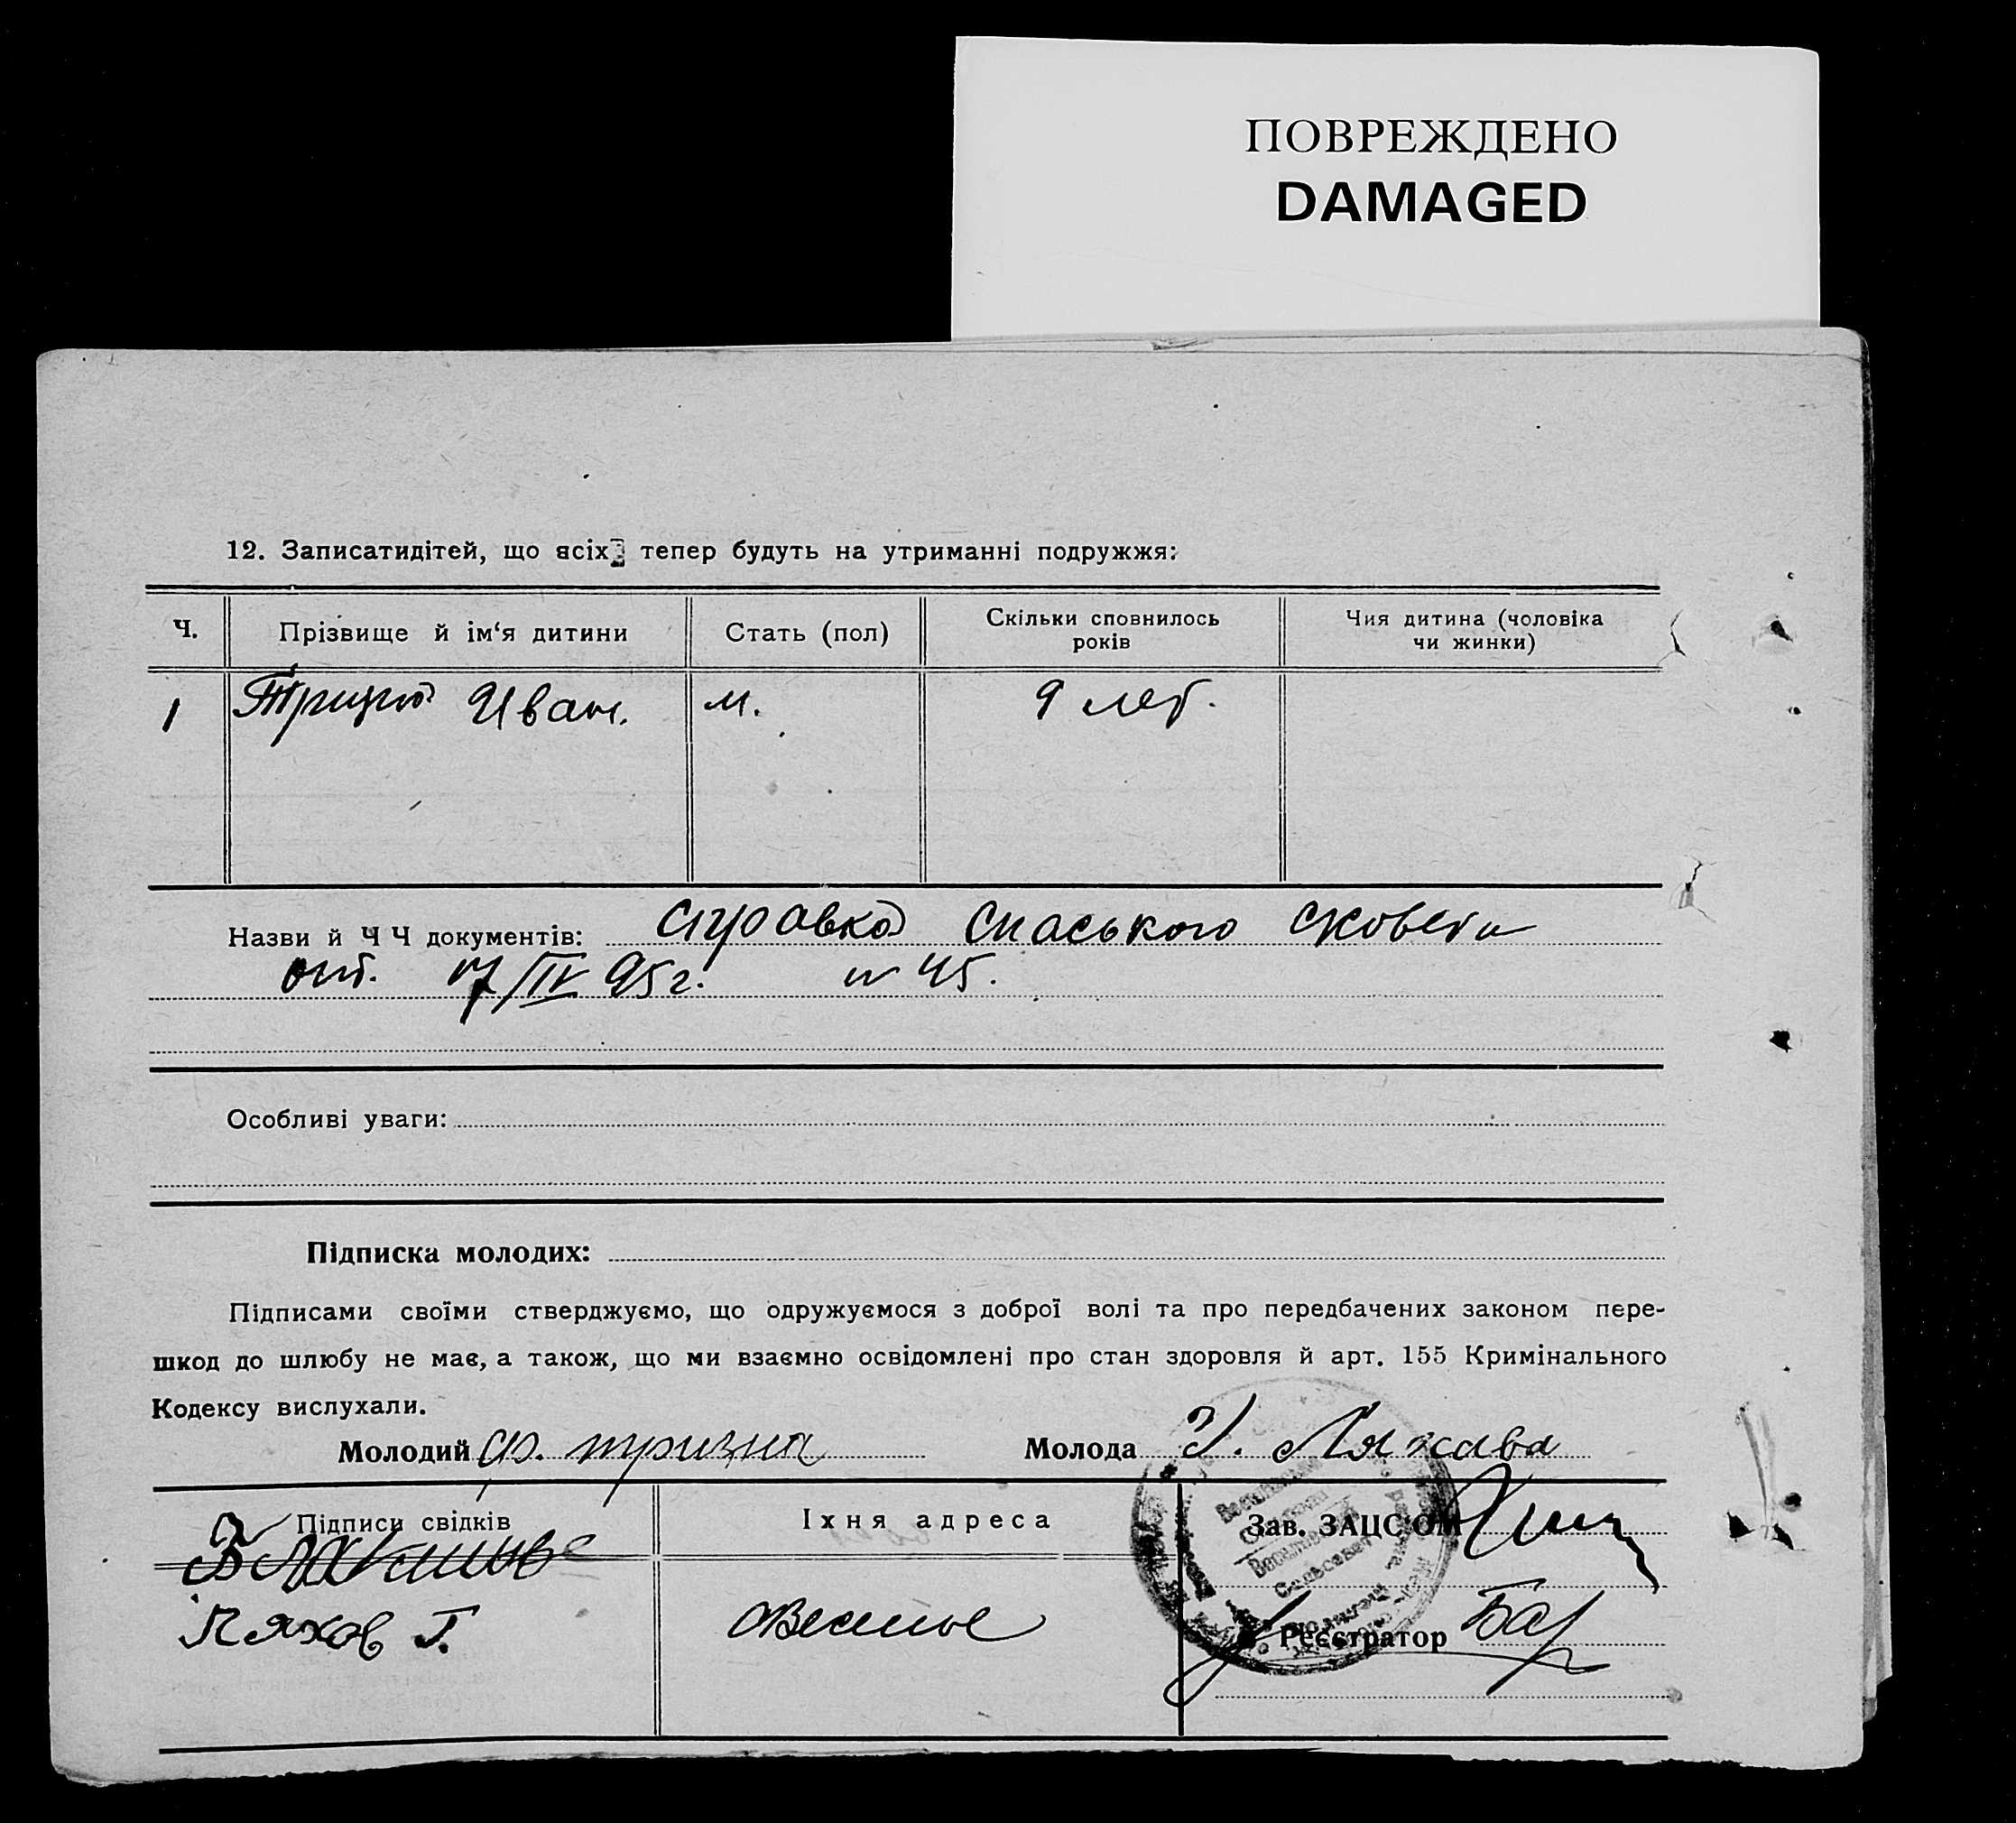 ПОВРЕЖДЕНО
DAMAGED
12. Записатидітей, що всіх тепер будуть на утриманні подружжя:
Ч.
Прізвище й ім'я дитини
Стать (пол)
Скільки сповнилось
років
Чия дитина (чоловіка
чи жинки)
1
Иван.
м.
9 лет.
Назви й Ч Ч документів: справка Спаського
от. 17/IV 95 г. № 45.
Особливі уваги:
Підписка молодих:
Підписами своїми стверджуємо, що одружуємося з доброї волі та про передбачених законом пере-
шкод до шлюбу не має, а також, що ми взаємно освідомлені про стан здоровля й арт. 155 Кримінального
Кодексу вислухали.
Молодий Ф. тризна
Молода Ляхава
Підписи свідків
Іхня адреса
Зав. ЗАЦС'ОМ
Ляхов Г.
Веселое
Реєстратор